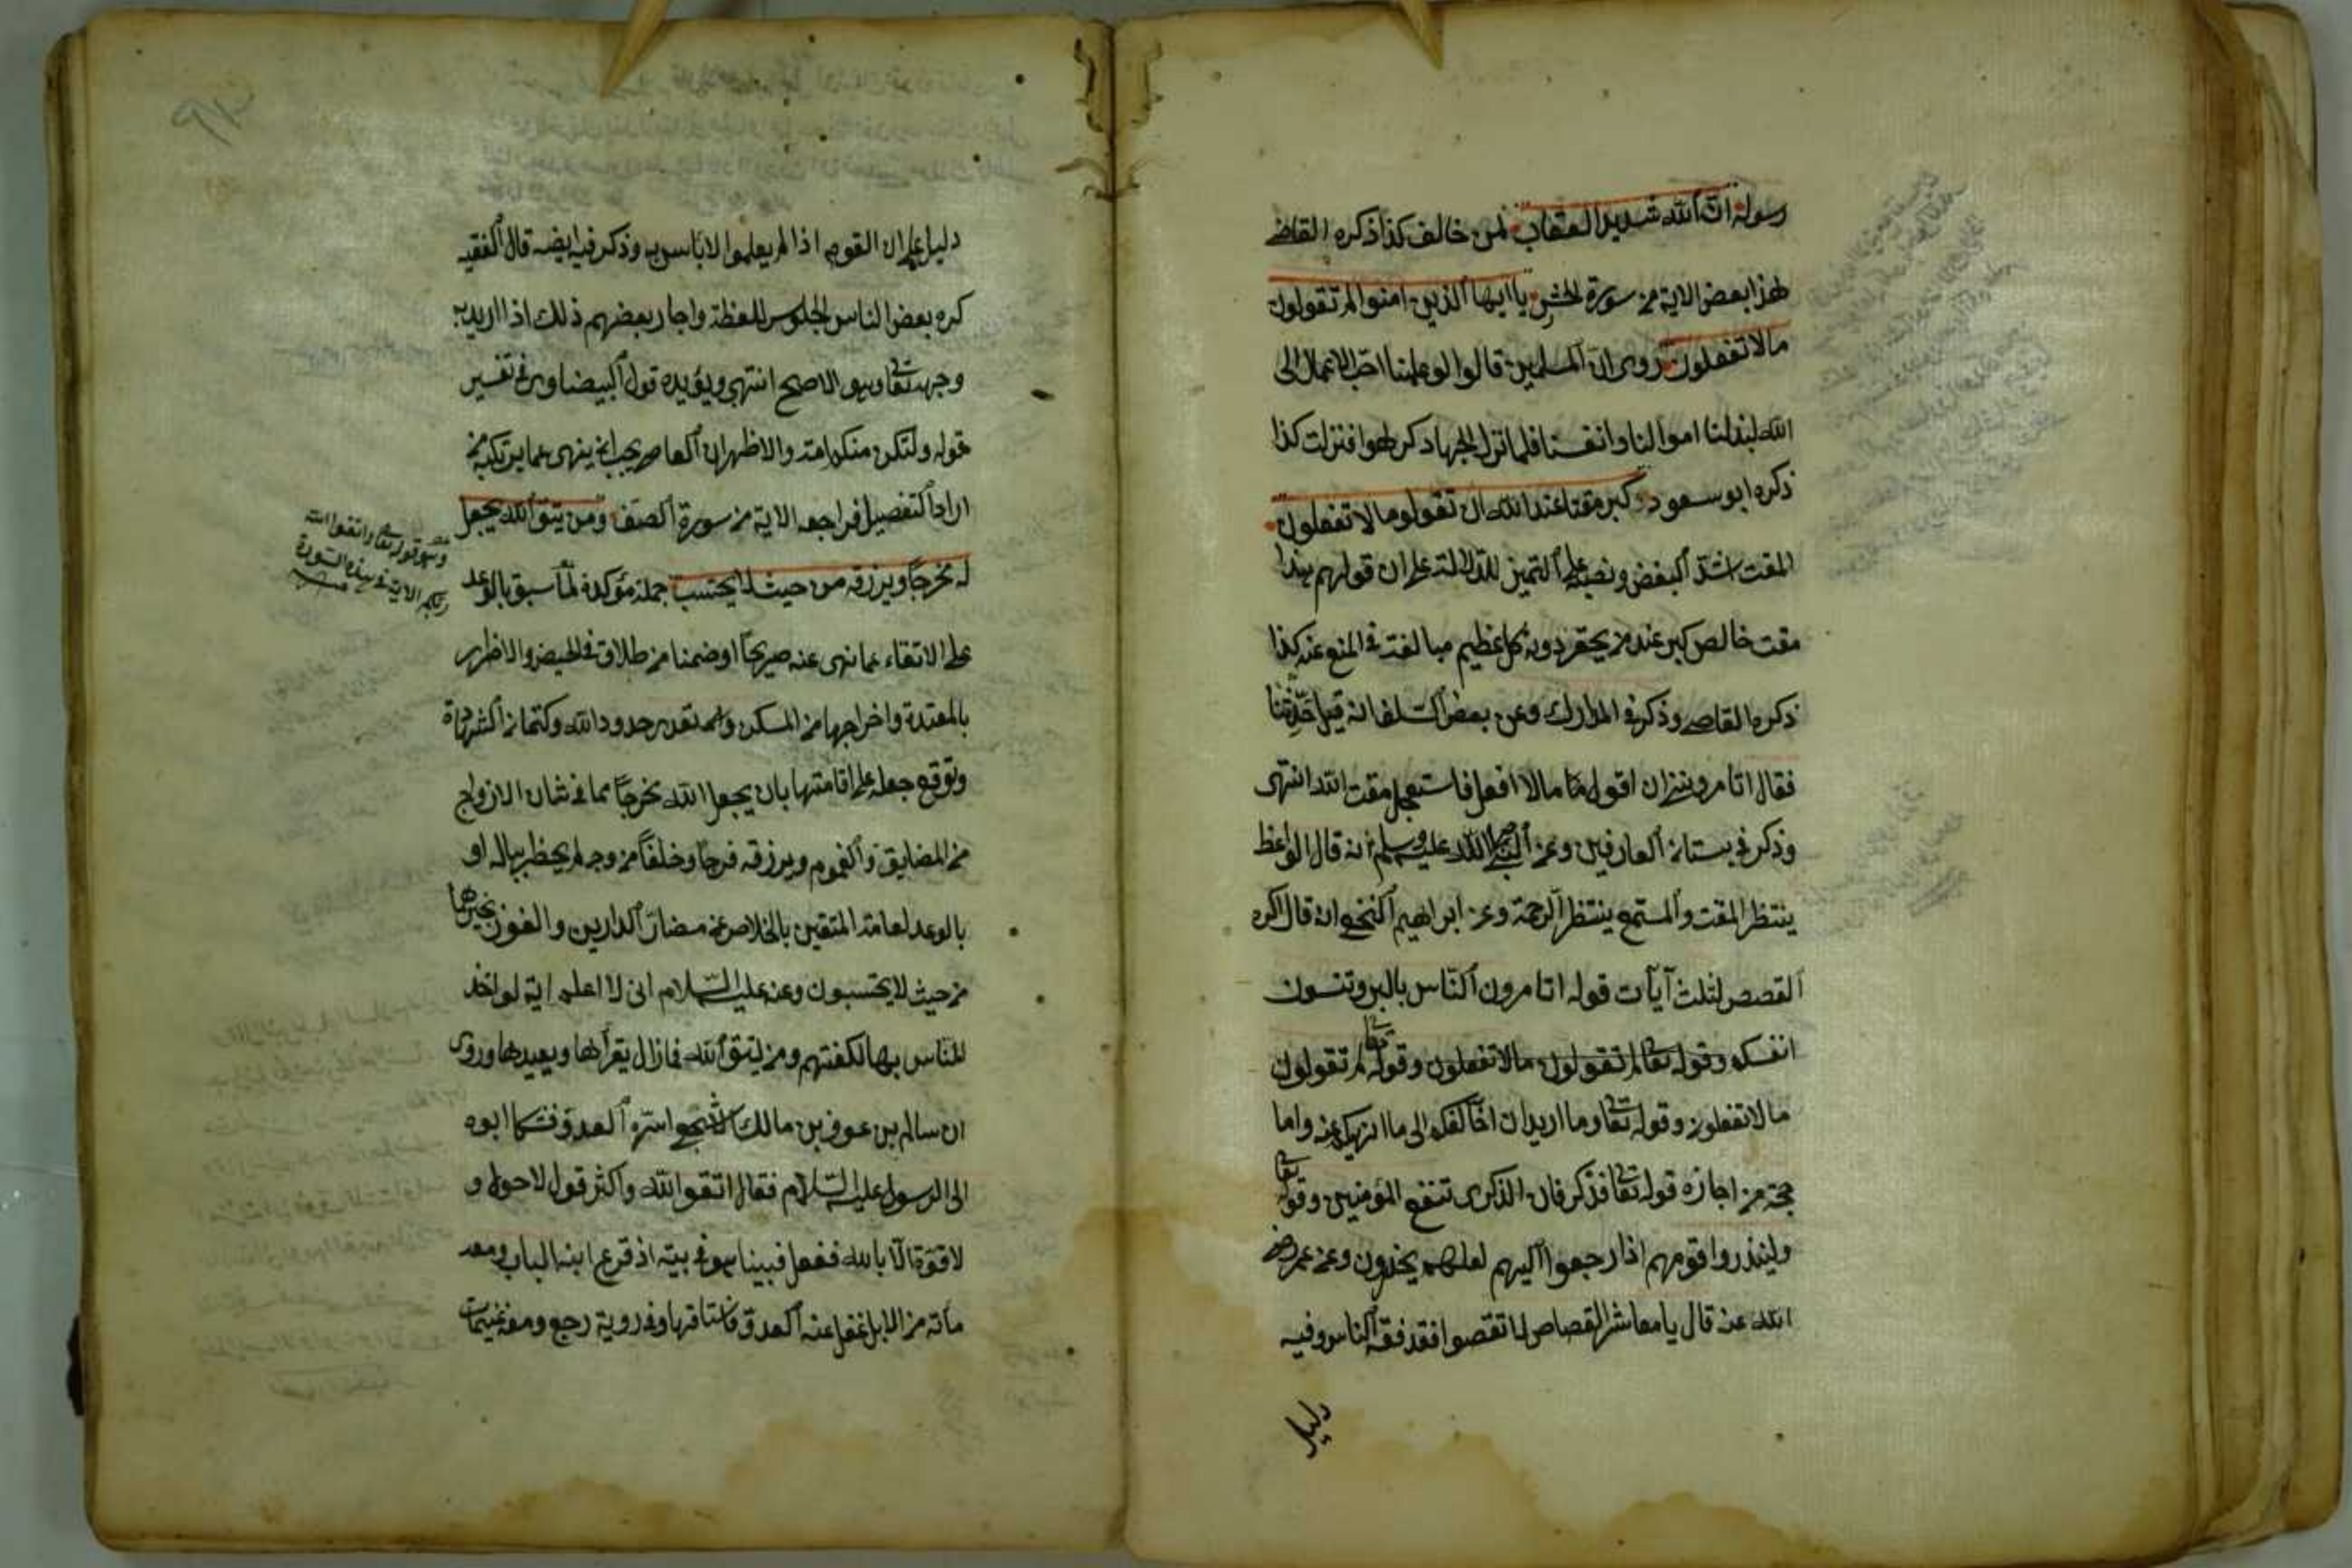 رسوله ان الله شديد العقاب لمن خالف كذا ذكره القاضى
هذا بعض الاية من سورة الحشر يا ايها الذين امنوا لم تقولون
ما لا تفعلون روى ان المسلمين قالوا لو علمنا احب الاعمال الى
الله لبذلنا اموالنا وانفسنا فلما نزل الجهاد كرهوا فنزلت كذا
ذكره ابو سعود كبر مقتا عند الله ان تقولوا ما لا تفعلون
المقت اشد البغض ونصبه على التميز للدلالة على ان قولهم هذا
مقت خالص كبر عند من يحقر دونه كل عظيم مبالغة فى المنع عنه كذا
ذكره القاضى وذكر فى المدارك وعن بعض السلف انه قيل له حدثنا
فقال اتأمروننى ان اقول ما لا افعل فاستعجل مقت الله انتهى
وذكر فى بستان العارفين وعن النبى صلى الله عليه وسلم انه قال الواعظ
ينتظر المقت والمستمع ينتظر الرحمة وعن ابراهيم النخعى انه قال اكره
القصص لثلث آيات قوله اتأمرون الناس بالبر وتنسون
انفسكم وقوله تعالى لم تقولون ما لا تفعلون وقوله تعالى لم تقولون
ما لا تفعلون وقوله تعالى وما اريد ان اخالفكم الى ما انهيكم عنه واما
حجة من اجازه قوله تعالى فذكر فان الذكرى تنفع المؤمنين وقوله تعالى
ولينذروا قومهم اذا رجعوا اليهم لعلهم يحذرون وعن عمر رضى
الله عنه قال يا معاشر القصاص لا تقصوا فقد فقه الناس وفيه
دليل
دليل على ان القوم اذا لم يعلموا لا باس به وذكر فيه ايضا قال الفقيه
كره بعض الناس الجلوس للعظة واجاز بعضهم ذلك اذا اريد به
وجه تعالى وهو الاصح انتهى ويؤيده قول البيضاوى فى تفسير
قوله ولتكن منكم امة والاظهر ان العاصى يجب ان ينهى عما يرتكبه من
اراد التفصيل فراجعه الاية من سورة الصف ومن يتق الله يجعل
له مخرجا ويرزقه من حيث لا يحتسب جملة مؤكدة لما سبق بالوعد
على الاتقاء عما نهى عنه صريحا او ضمنا من طلاق فى الحيض والاضرار
بالمعتدة واخراجها من المسكن وتعدى حدود الله وكتمان الشهادة
وتوقع جعل على اقامتها بان يجعل الله مخرجا مما فى شان الازواج
من المضايق والغموم ويرزقه فرجا وخلفا من وجه لم يخطر بباله او
بالوعد لعامة المتقين بالخلاص عن مضار الدارين والفوز بخيرهما
من حيث لا يحتسبون وعنه عليه السلام انى لا اعلم اية لو اخذ
الناس بها لكفتهم ومن يتق الله فما زال يقرأها ويعيدها وروى
ان سالم بن عوف بن مالك الاشجعى اسره العدو فشكا ابوه
الى الرسول عليه السلام فقال اتقوا الله واكثر قول لا حول و
لا قوة الا بالله ففعل فبينا هو فى بيته اذ قرع ابنه الباب ومعه
مائة من الابل غفل عنه العدو فاستاقها وفى رواية رجع ومعه غنيمات
وهو قوله تعالى واتقوا الله
ربكم الاية فى هذه السورة